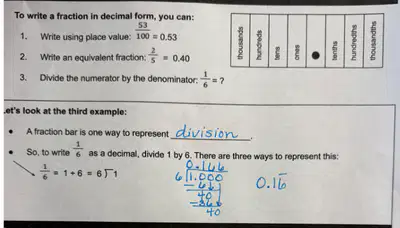 To write a fraction in decimal form, you can:
1. Write using place value: 53/100 = 0.53
2. Write an equivalent fraction: 2/5 = 0.40
3. Divide the numerator by the denominator: 1/6 = ?
thousands
hundreds
tens
ones
tenths
hundredths
thousandths
Let's look at the third example:
• A fraction bar is one way to represent division.
• So, to write 1/6 as a decimal, divide 1 by 6. There are three ways to represent this:
1/6 = 1÷6 = 6⟌1
0.166
6⟌1.000
-6↓
40
-36↓
40
0.16̅